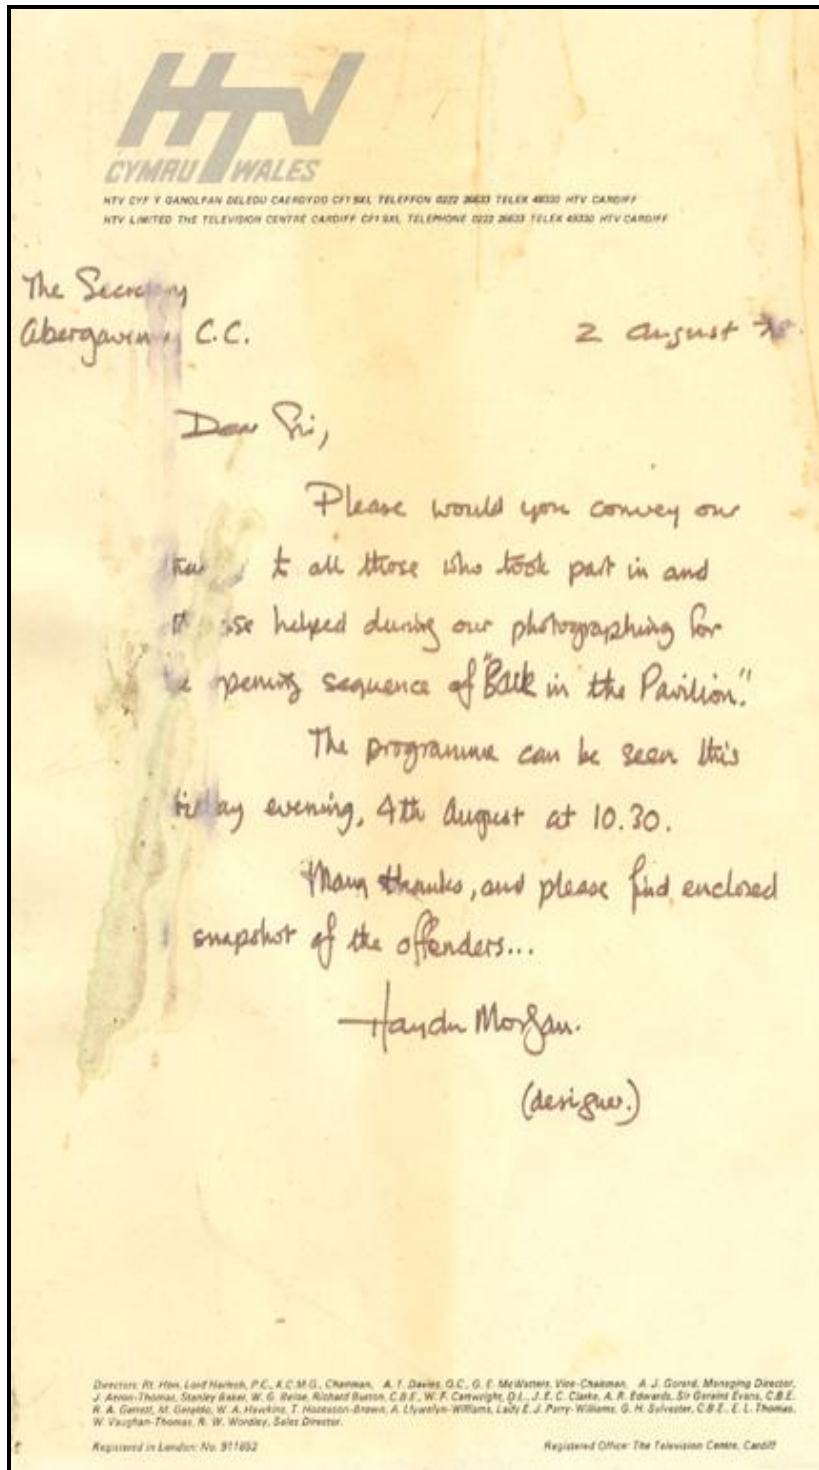 HTV
CYMRU WALES
HTV CYF Y GANOLFAN DELEDU CAERDYDD CF1 9XL TELEFFON 0222 26633 TELEX 49330 HTV CARDIFF
HTV LIMITED THE TELEVISION CENTRE CARDIFF CF1 9XL, TELEPHONE 0222 26633 TELEX 49330 HTV CARDIFF
The Secretary
Abergavenny C.C.
2 August
Dear Sir,
Please would you convey our
to all those who took part in and
helped during our photographing for
opening sequence of "Back in the Pavilion."
The programme can be seen this
evening, 4th August at 10.30.
Many thanks, and please find enclosed
snapshot of the offenders...
Haydn Morgan.
(designer.)
Directors: Rt. Hon. Lord Harlech, P.C., K.C.M.G., Chairman, A. T. Davies, Q.C., G. E. McWatters, Vice-Chairman, A. J. Gorard, Managing Director,
J. Aeron-Thomas, Stanley Baker, W. G. Beloe, Richard Burton, C.B.E., W. F. Cartwright, D.L., J. E. C. Clarke, A. R. Edwards, Sir Geraint Evans, C.B.E.
R. A. Garrett, M. Geraldo, W. A. Hawkins, T. Hodgson-Brown, A. Llywelyn-Williams, Lady E. J. Parry-Williams, G. H. Sylvester, C.B.E., E. L. Thomas,
W. Vaughan-Thomas, R. W. Wordley, Sales Director.
Registered in London: No. 911652
Registered Office: The Television Centre, Cardiff